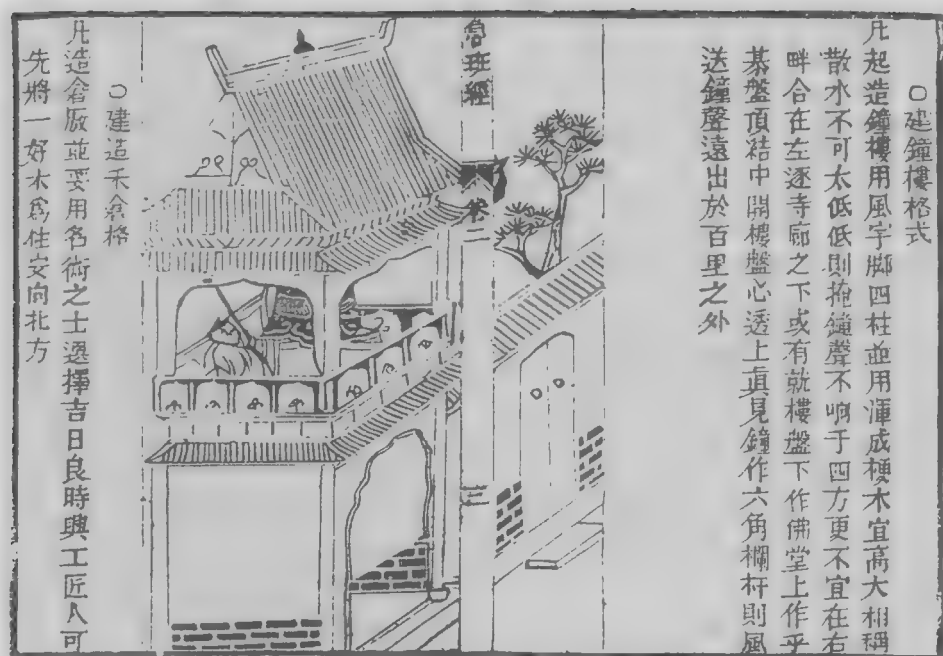 ○建鐘樓格式
凡起造鐘樓用風字脚四柱並用渾成梗木宜高大相稱
散水不可太低低則掩鐘聲不响于四方更不宜在右
畔合在左逐寺廊之下或有就樓盤下作佛堂上作平
棊盤頂結中開樓盤心透上直見鐘作六角欄杆則風
送鐘聲遠出於百里之外
魯班經
卷二
三
○建造禾倉格
凡造倉厫並要用名術之士選擇吉日良時興工匠人可
先將一好木爲住安向北方